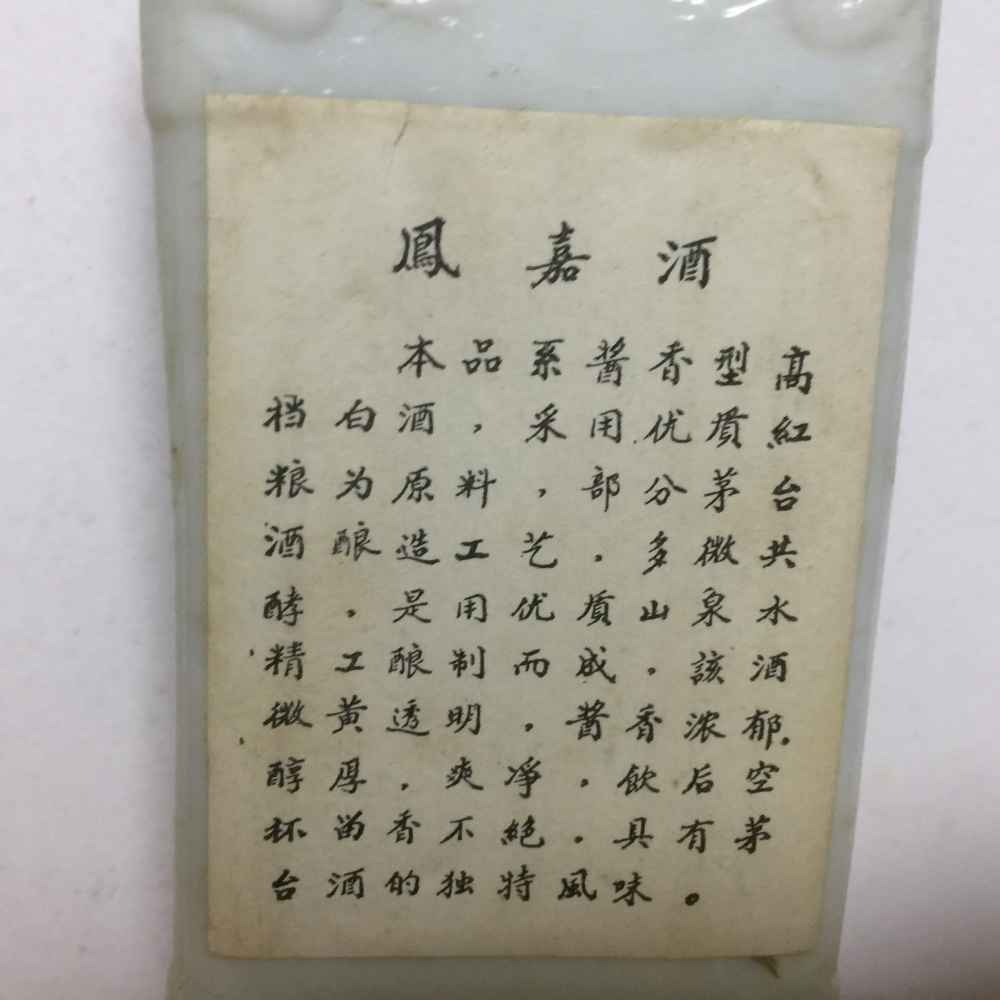 鳳嘉酒
本品系醬香型高
档白酒，采用优質紅
粮为原料，部分茅台
酒酿造工艺，多微共
酵，是用优質山泉水
精工酿制而成，該酒
微黄透明，酱香浓郁，
醇厚，爽净，飲后空
杯留香不絕，具有茅
台酒的独特風味。